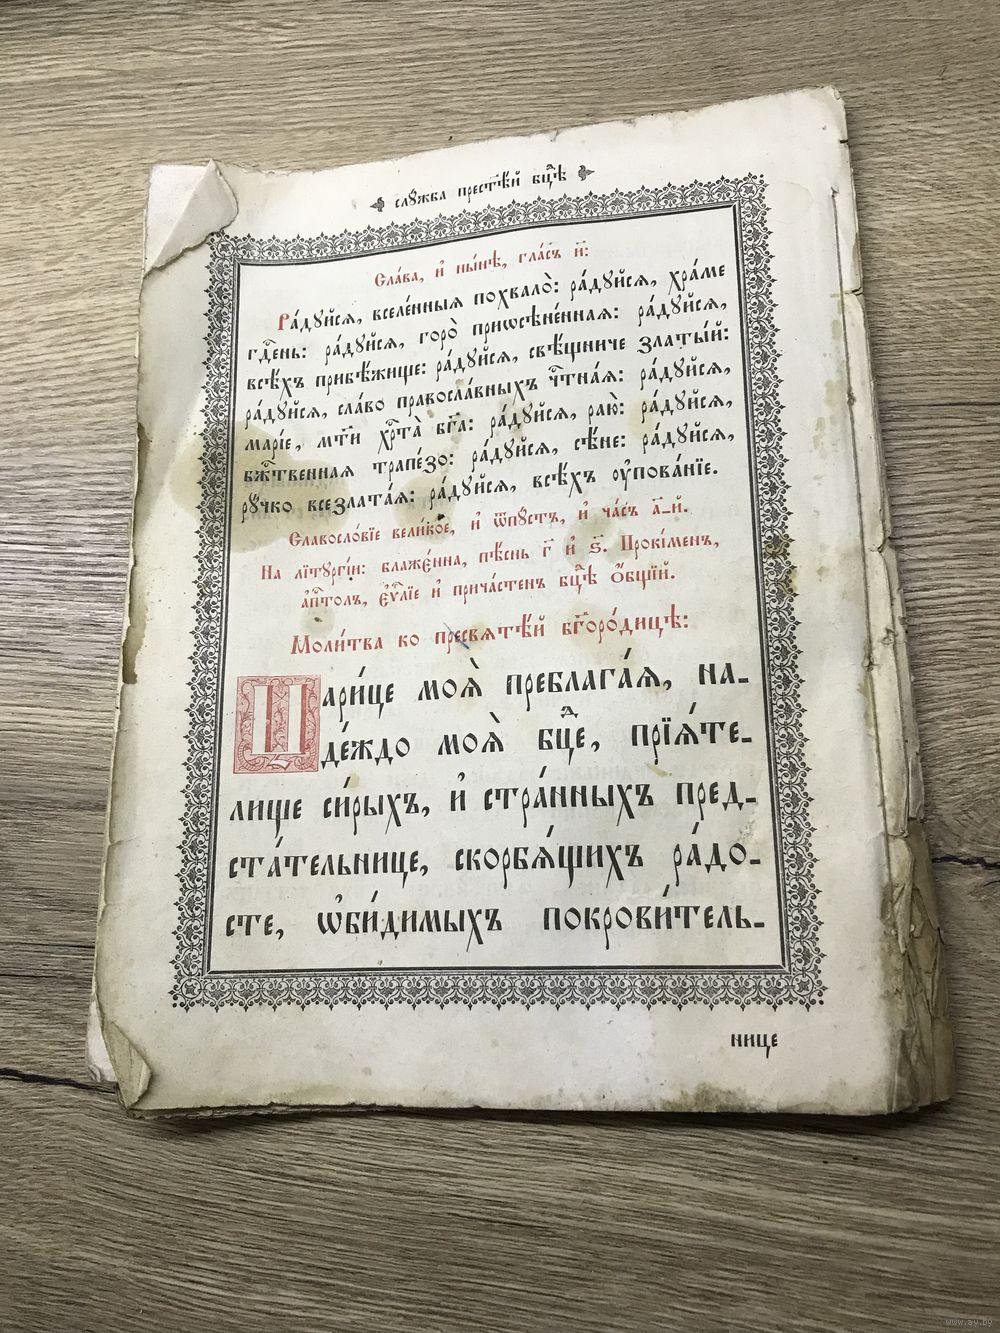 слꙋ́жба прест҃ѣ́й бцⷣѣ
Сла́ва, и҆ ны́нѣ, гла́съ и҃:
Ра́дꙋйсѧ, вселе́нныѧ похвало̀: ра́дꙋйсѧ, хра́ме
гдⷭ҇ень: ра́дꙋйсѧ, горо̀ приѡсѣне́ннаѧ: ра́дꙋйсѧ,
всѣ́хъ прибѣ́жище: ра́дꙋйсѧ, свѣ́щниче златы́й:
ра́дꙋйсѧ, сла́во правосла́вныхъ чⷭ҇тна́ѧ: ра́дꙋйсѧ,
марі́е, мт҃и хрⷭ҇та̀ бг҃а: ра́дꙋйсѧ, раю̀: ра́дꙋйсѧ,
бжⷭ҇твеннаѧ трапе́зо: ра́дꙋйсѧ, сѣ́не: ра́дꙋйсѧ,
рꙋ́чко всезлата́ѧ: ра́дꙋйсѧ, всѣ́хъ ᲂу҆пова́нїе.
Славосло́вїе вели́кое, и҆ ѿпꙋ́стъ, и҆ ча́съ а҃-й.
На лїтꙋргі́и: блажє́нна, пѣ́снь г҃ и҆ ѕ҃. Прокі́менъ,
а҆пⷭ҇толъ, є҆ѵⷢ҇лїе и҆ прича́стенъ бцⷣѣ ѻ҆́бщїй.
Моли́тва ко пресвѧтѣ́й бг҃оро́дицѣ:
Цари́це моѧ̀ преблага́ѧ, на-
де́ждо моѧ̀ бцⷣе, прїѧ́те-
лище си́рыхъ, и҆ стра́нныхъ пред-
ста́тельнице, скорбѧ́щихъ ра́до-
сте, ѡ҆би́димыхъ покрови́тель-
нице
www.ay.by